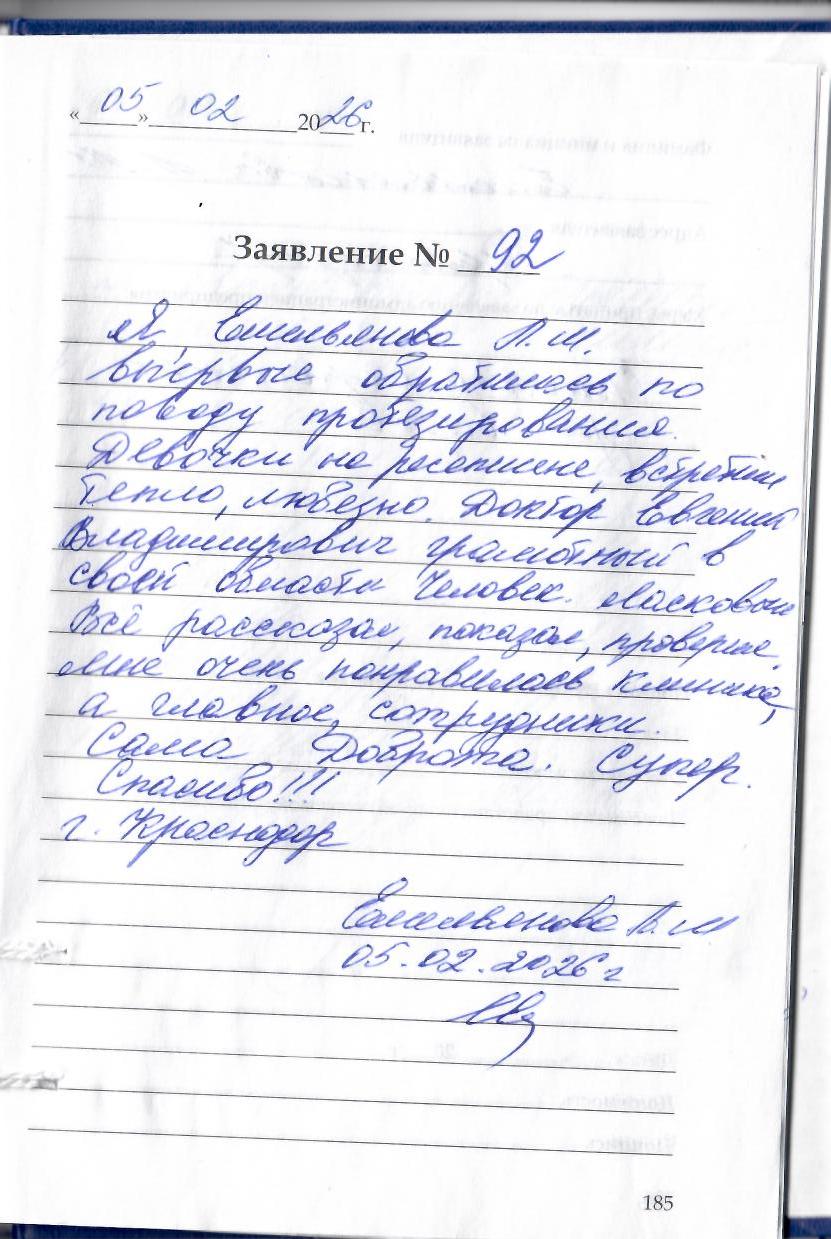 «05» 02 2026 г.
Заявление № 92
Я Емельянова Л.М.
впервые обратилась по
поводу протезирования.
Девочки на ресепшене, встретили
тепло, любезно. Доктор Евгений
Владимирович грамотный в
своей области человек. Ласковый
Всё рассказал, показал, проверил.
Мне очень понравилась клиника,
а главное, сотрудники.
Сама Доброта. Супер.
Спасибо!!!
г. Краснодар
Емельянова Л.М
05.02.2026 г
185